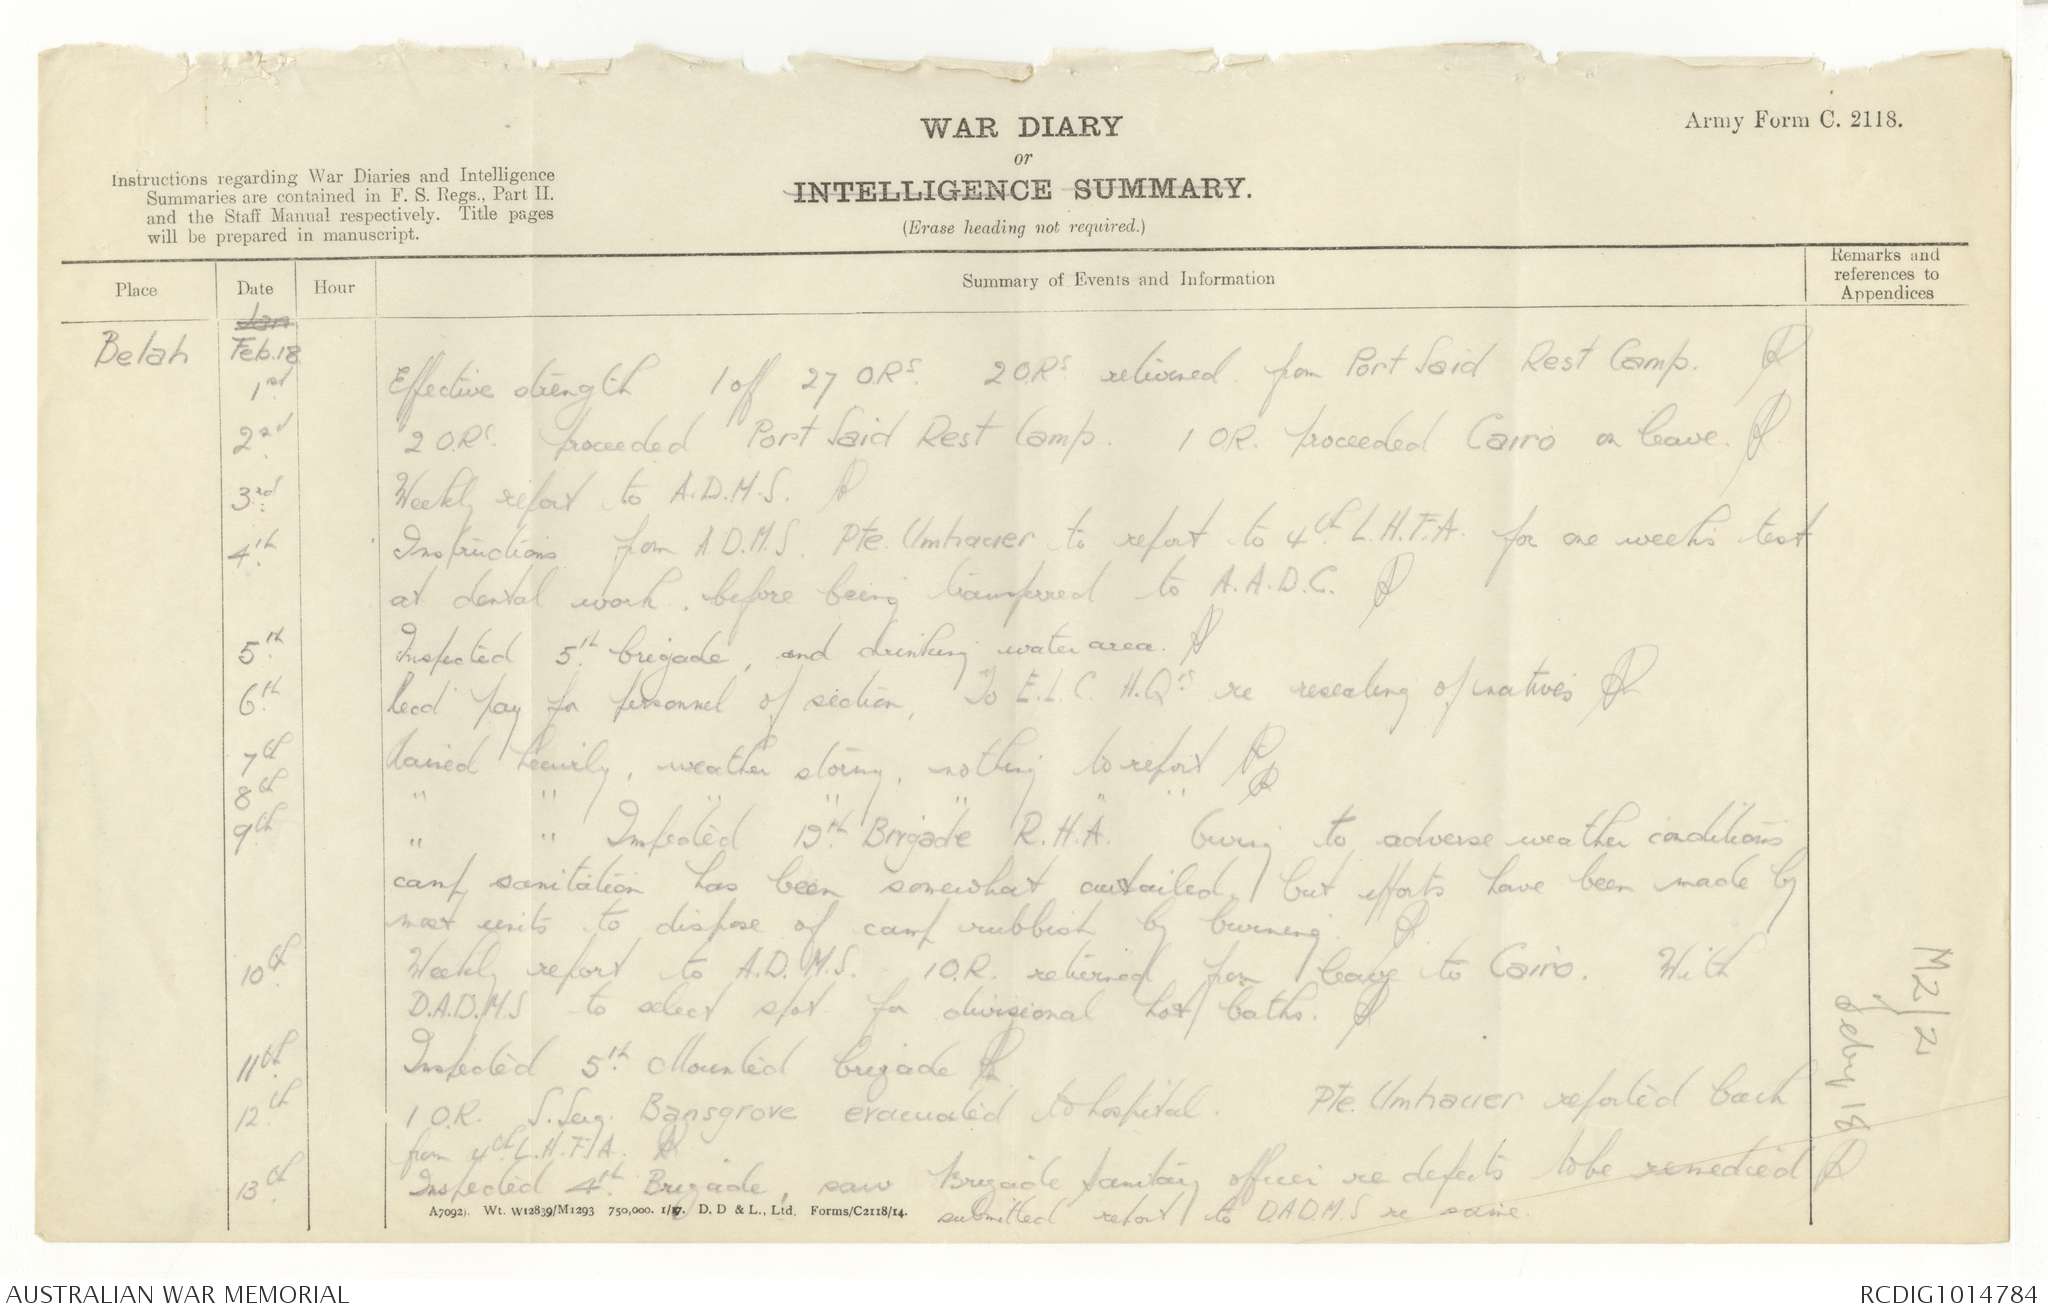 WAR DIARY
or
INTELLIGENCE SUMMARY.
(Erase heading not required.)
Army Form C. 2118.
Instructions regarding War Diaries and Intelligence
Summaries are contained in F. S. Regs., Part II.
and the Staff Manual respectively. Title pages
will be prepared in manuscript.
Place Date Hour Summary of Events and Information Remarks and references to Appendices
Jan
Belah Feb. 18
1st Effective strength 1 off 27 O.Rs. 2 O.Rs. returned from Port Said Rest Camp.
2nd 2 O.Rs. proceeded Port Said Rest Camp. 1 O.R. proceeded Cairo on leave.
3rd Weekly report to A.D.M.S.
4th Instructions from A.D.M.S. Pte. Umhauer to report to 4th L.H.F.A. for one weeks test
at dental work, before being transferred to A.A.D.C.
5th Inspected 5th brigade, and drinking water area.
6th Recd pay for personnel of section, To E.L.C. H.Qrs re of natives
7th Rained heavily, weather stormy, nothing to report
8th " " " " " " "
9th " " Inspected 19th Brigade R.H.A. Owing to adverse weather conditions
camp sanitation has been somewhat curtailed, but efforts have been made by
most units to dispose of camp rubbish by burning.
10th Weekly report to A.D.M.S. 1 O.R. returned from leave to Cairo. With
D.A.D.M.S to select spot for divisional hot baths.
11th Inspected 5th Mounted brigade
12th 1 O.R. S.Serg. Bansgrove evacuated to hospital. Pte. Umhauer reported back
from 4th L.H.F.A.
13th Inspected 4th Brigade, saw Brigade Sanitary officer re defects to be remedied
submitted report to D.A.D.M.S re same.
A7092). Wt. W12839/M1293 750,000. 1/17. D. D & L., Ltd. Forms/C2118/14.
M2/2
Feby 18
AUSTRALIAN WAR MEMORIAL
RCDIG1014784